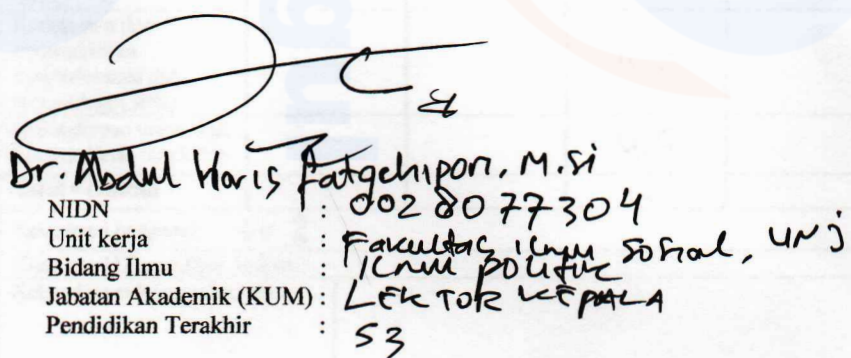 Dr. Abdul Haris Fatgehipon, M.Si
NIDN : 0028077304
Unit kerja : Fakultas ilmu Sosial, UNJ
Bidang Ilmu : ilmu politik
Jabatan Akademik (KUM) : LEKTOR KEPALA
Pendidikan Terakhir : S3